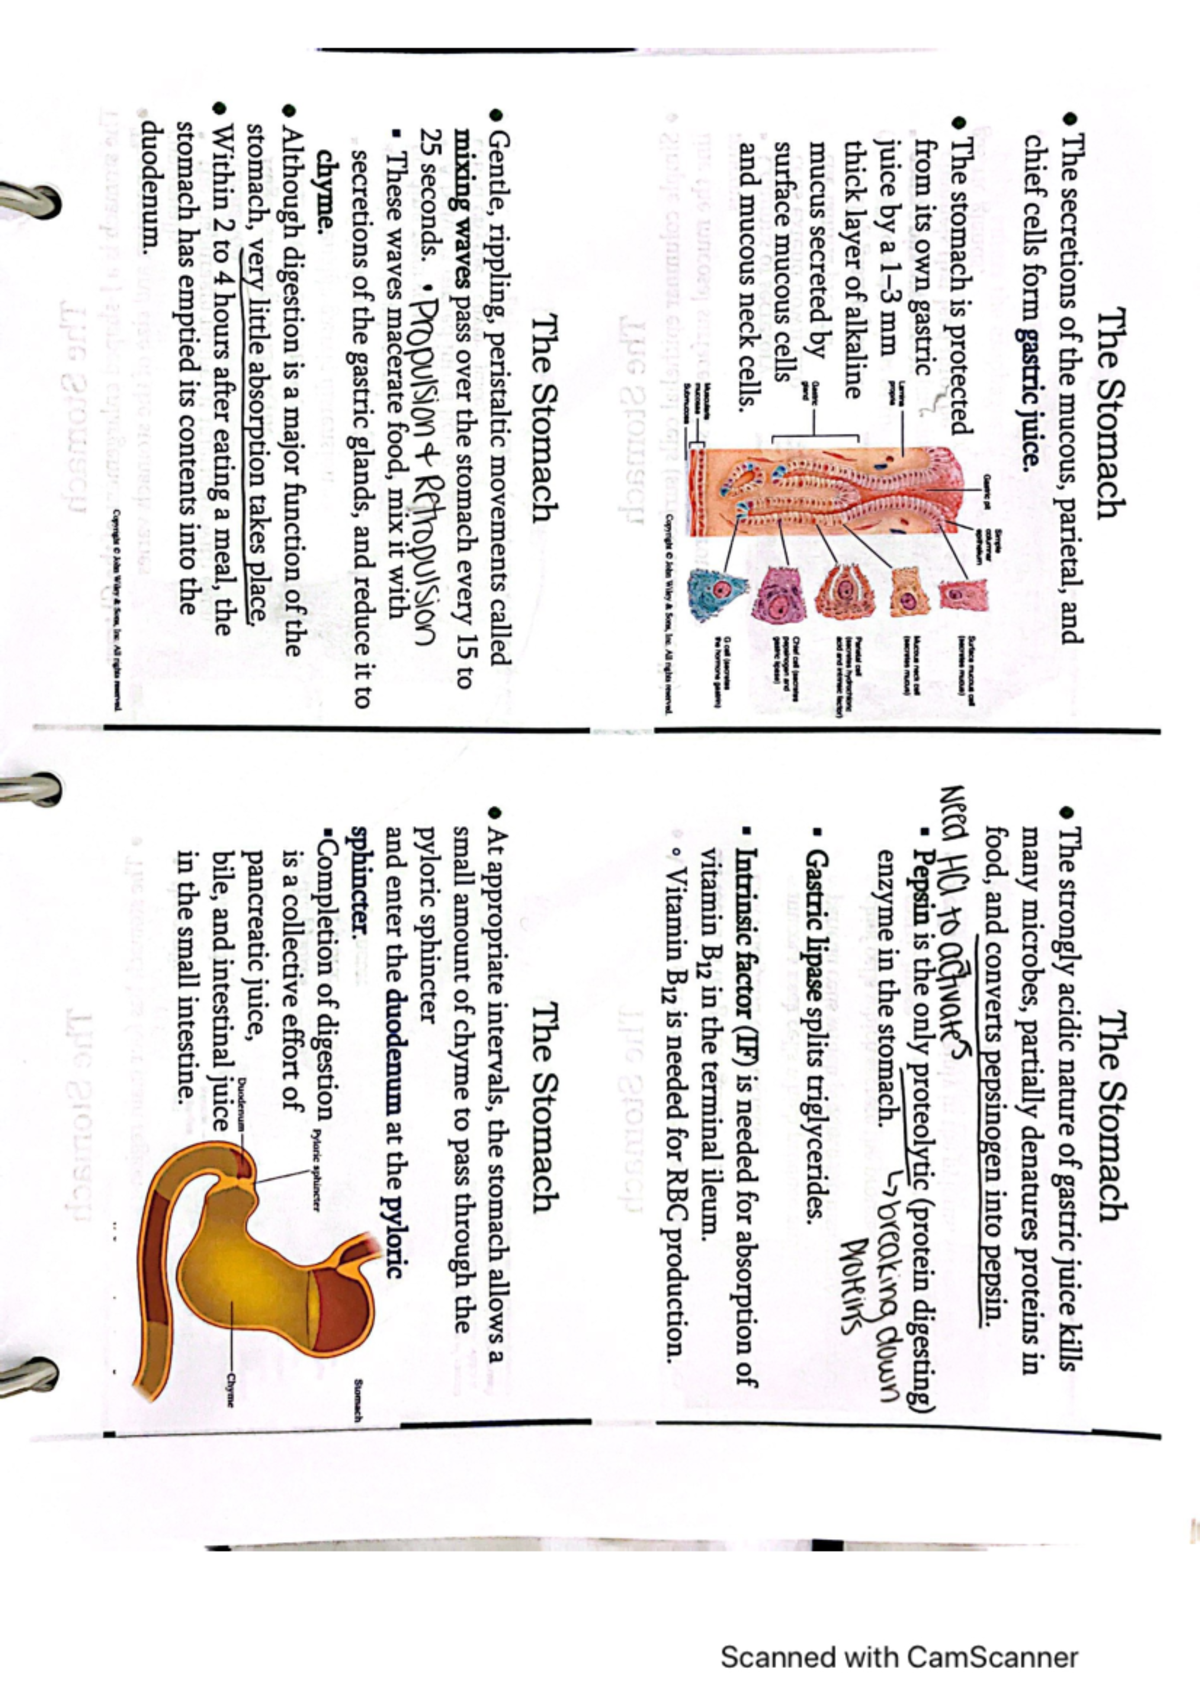 The Stomach
• The secretions of the mucous, parietal, and
chief cells form gastric juice.
• The stomach is protected
from its own gastric
juice by a 1–3 mm
thick layer of alkaline
mucus secreted by
surface mucous cells
and mucous neck cells.
Gastric pit
Simple
columnar
epithelium
Lamina
propria
Gastric
gland
Muscularis
mucosae
Submucosa
Surface mucous cell
(secretes mucus)
Mucous neck cell
(secretes mucus)
Parietal cell
(secretes hydrochloric
acid and intrinsic factor)
Chief cell (secretes
pepsinogen and
gastric lipase)
G cell (secretes
the hormone gastrin)
Copyright © John Wiley & Sons, Inc. All rights reserved.
The Stomach
• The strongly acidic nature of gastric juice kills
many microbes, partially denatures proteins in
food, and converts pepsinogen into pepsin.
Need HCl to activate
▪ Pepsin is the only proteolytic (protein digesting)
enzyme in the stomach.
↳ breaking down
proteins
▪ Gastric lipase splits triglycerides.
▪ Intrinsic factor (IF) is needed for absorption of
vitamin B12 in the terminal ileum.
° Vitamin B12 is needed for RBC production.
The Stomach
• Gentle, rippling, peristaltic movements called
mixing waves pass over the stomach every 15 to
25 seconds. • Propulsion & Retropulsion
▪ These waves macerate food, mix it with
secretions of the gastric glands, and reduce it to
chyme.
• Although digestion is a major function of the
stomach, very little absorption takes place.
• Within 2 to 4 hours after eating a meal, the
stomach has emptied its contents into the
duodenum.
Copyright © John Wiley & Sons, Inc. All rights reserved.
The Stomach
• At appropriate intervals, the stomach allows a
small amount of chyme to pass through the
pyloric sphincter
and enter the duodenum at the pyloric
sphincter.
▪ Completion of digestion
is a collective effort of
pancreatic juice,
bile, and intestinal juice
in the small intestine.
Stomach
Pyloric sphincter
Duodenum
Chyme
Scanned with CamScanner